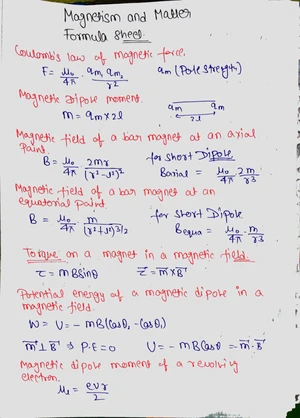 Magnetism and Matter
Formula sheet.
Coulomb's law of magnetic force.
F = μ₀/4π . qm₁ qm₂/r²   qm (Pole strength)
Magnetic Dipole moment.
qm qm
m = qm × 2l
2l
Magnetic field of a bar magnet at an axial
Point.
B = μ₀/4π 2mr/(r²-l²)²   for short Dipole
Baxial = μ₀/4π 2m/r3
Magnetic field of a bar magnet at an
equatorial point
B = μ₀/4π m/(r²+l²)3/2   for short Dipole
Bequa = μ₀/4π . m/r3
Torque on a magnet in a magnetic field.
τ = mBsinθ   τ⃗ = m⃗ × B⃗
Potential energy of a magnetic dipole in a
magnetic field.
W = U = - mB(cosθ₂ - cosθ₁)
m⃗ ⊥ B⃗ ⇒ P.E = 0   U = - mBcosθ = m⃗ . B⃗
Magnetic dipole moment of a revolving
electron.
μl = evr/2